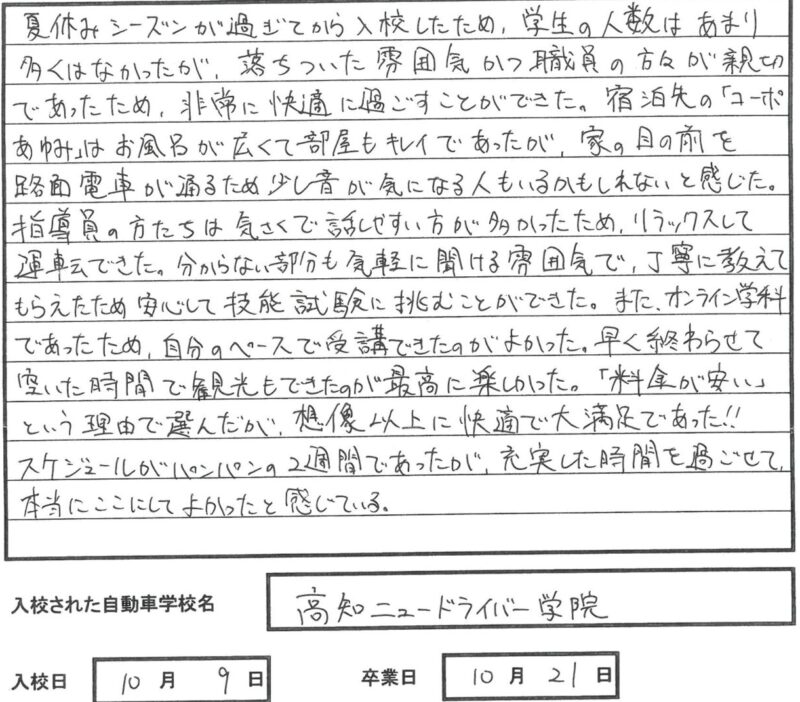 夏休みシーズンが過ぎてから入校したため、学生の人数はあまり
多くはなかったが、落ちついた雰囲気かつ職員の方々が親切
であったため、非常に快適に過ごすことができた。宿泊先の「コーポ
あゆみ」はお風呂が広くて部屋もキレイであったが、家の目の前を
路面電車が通るため少し音が気になる人もいるかもしれないと感じた。
指導員の方たちは気さくで話しやすい方が多かったため、リラックスして
運転できた。分からない部分も気軽に聞ける雰囲気で、丁寧に教えて
もらえたため安心して技能試験に挑むことができた。また、オンライン学科
であったため、自分のペースで受講できたのがよかった。早く終わらせて
空いた時間で観光もできたのが最高に楽しかった。「料金が安い」
という理由で選んだが、想像以上に快適で大満足であった!!
スケジュールがパンパンの2週間であったが、充実した時間を過ごせて、
本当にここにしてよかったと感じている。
入校された自動車学校名 高知ニュードライバー学院
入校日 10月9日 卒業日 10月21日